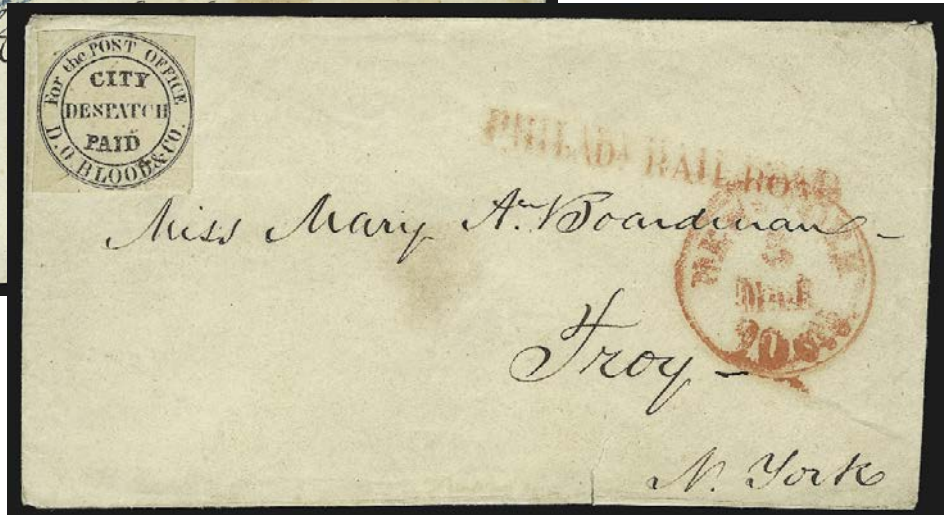 For the POST OFFICE
CITY
DESPATCH
PAID
D.O. BLOOD & CO.
PHILADA RAIL ROAD
NEW-YORK
5
MAR
20 cts.
Miss Mary An Boardman -
Troy -
N. York